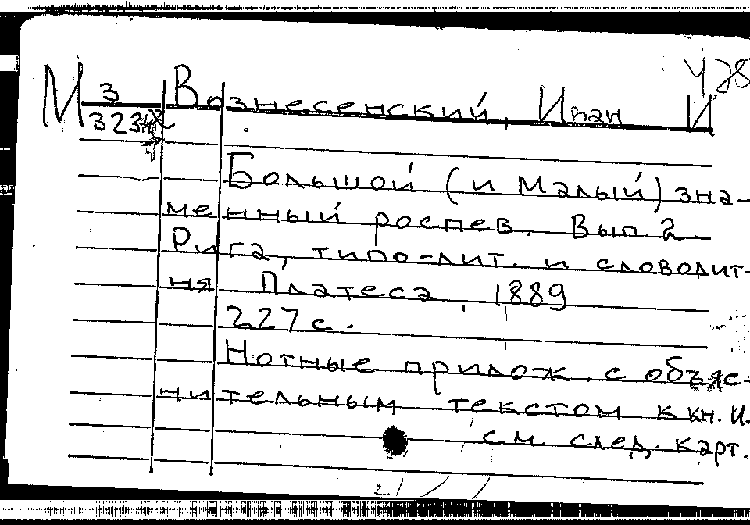 428
М 3 Вознесенский, Иван И
323
Большой (и Малый) зна-
менный роспев. Вып. 2
Рига, типо-лит. и словолит-
ня Платеса, 1889
227 с.
Нотные прилож. с объяс-
нительным текстом к кн. И.
см. след. карт.